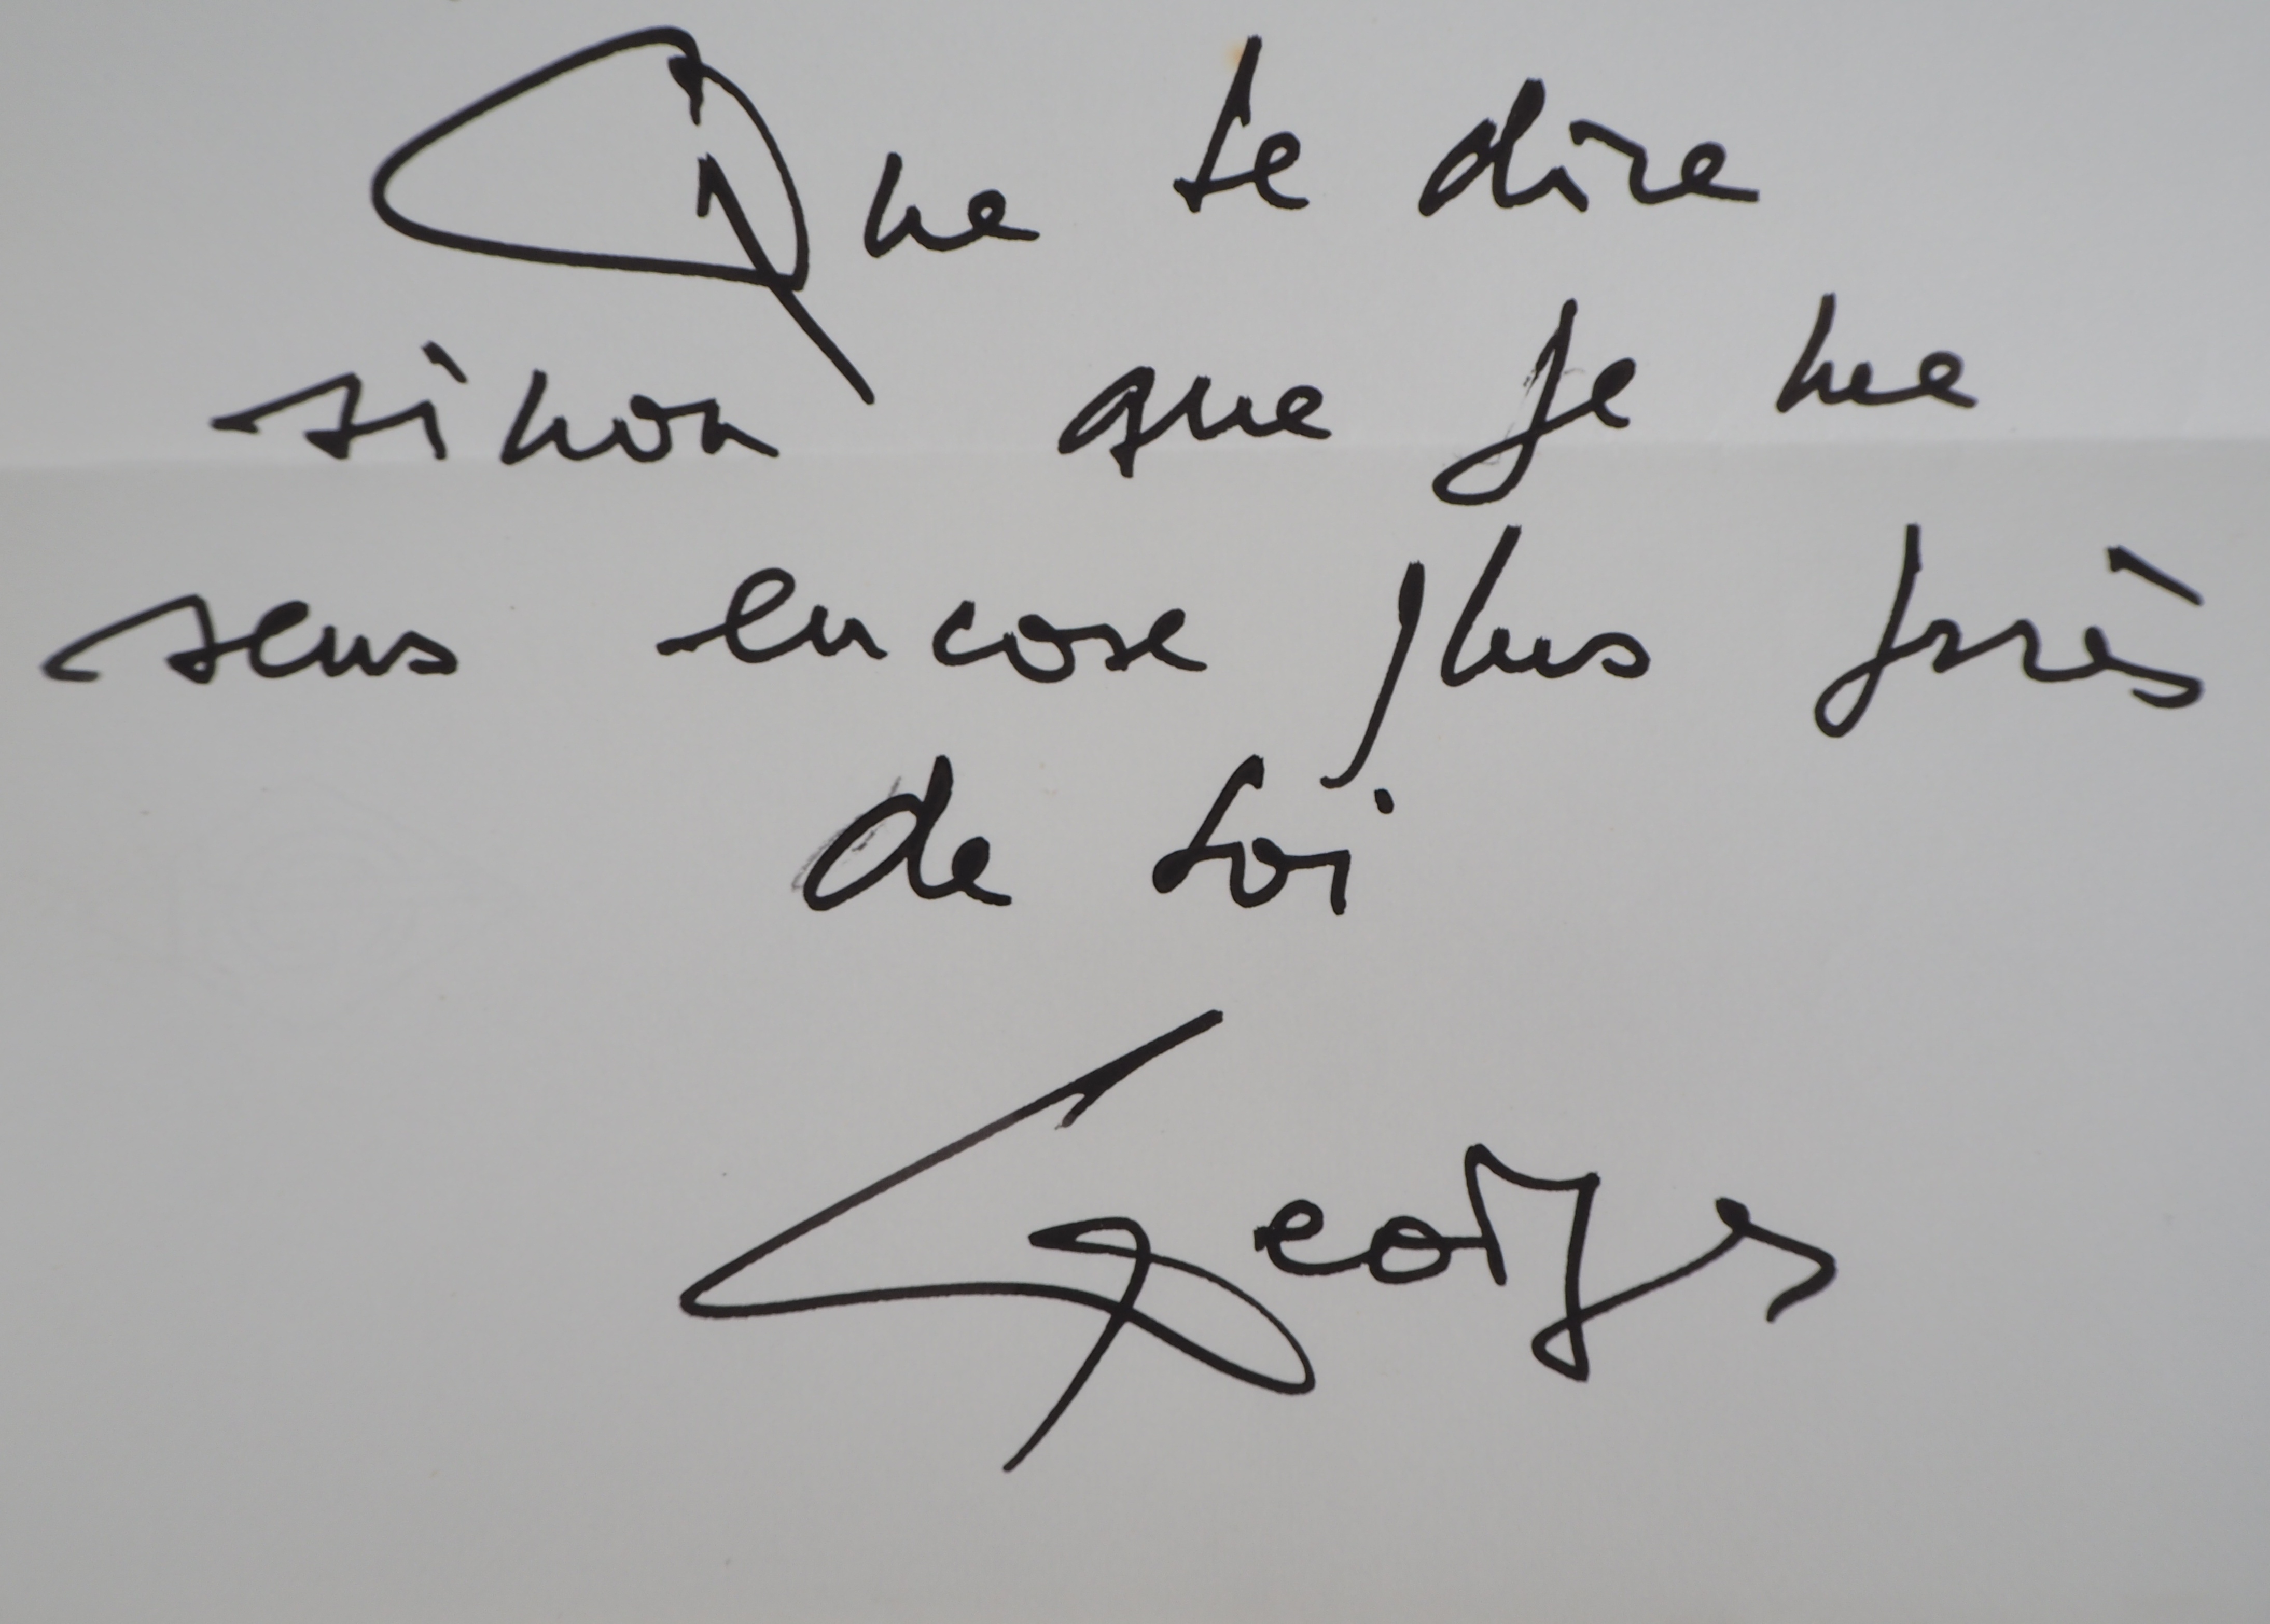 Que te dire
sinon que je me
sens encore plus près
de toi
Georges